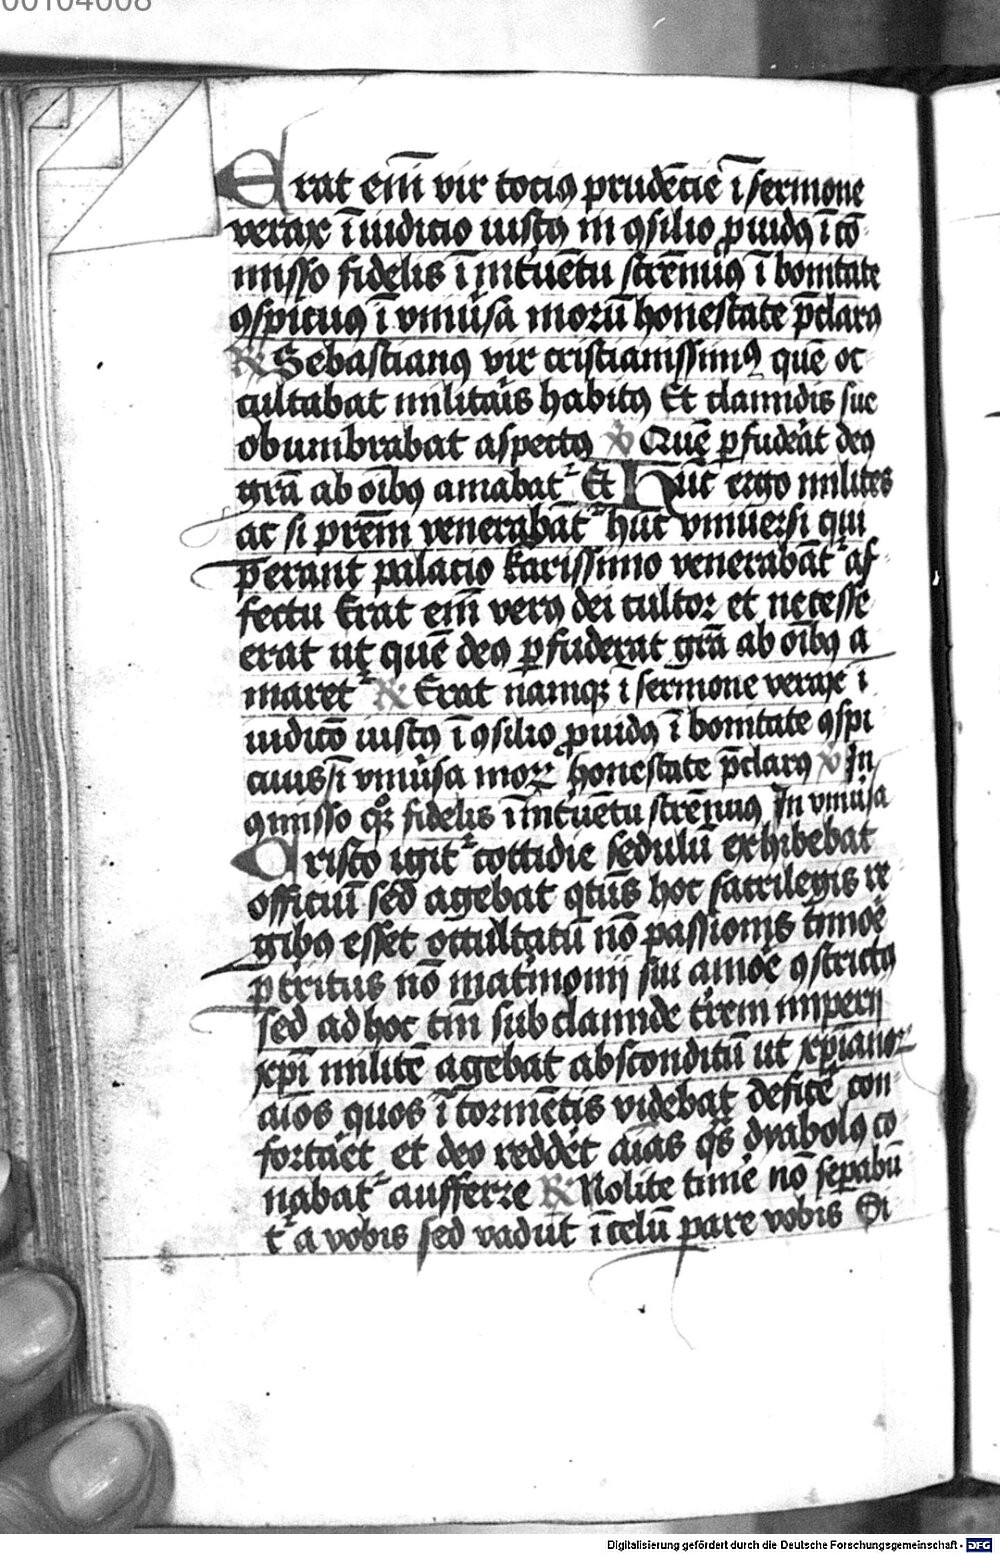 00104008
Erat em̄ vir tociꝰ prudēcie ī sermone
verax ī iudicio iustꝰ in ꝯsilio ꝓuidꝰ ī cō
misso fidelis ī int̄uētu strēnuꝰ ī bonitate
ꝯspicuꝰ ī vniūsa morū honestate p̄clarꝰ
℟ Sebastianꝰ vir cristianissimꝰ quē oc
cultabat militaīs habitꝰ Et clamidis sue
obumbrabat aspectꝰ ℣ Quē ꝑfudeāt deꝰ
grā ab oībꝰ amabat᷑ Et Hūc ergo milites
ac si prēm venerabāt᷑ hūc vniuersi qui
p̄erant palacio karissimo venerabāt᷑ af
fectu Erat em̄ verꝰ dei cultor et necesse
erat ut quē deꝰ ꝑfuderat grā ab oībꝰ a
maret᷑ ℟ Erat namqꝫ ī sermone verax ī
iudicō iustꝰ ī ꝯsilio ꝓuidꝰ ī bonitate ꝯspi
cuus ī vniūsa moꝝ honestate p̄clarꝰ ℣ In
ꝯmisso qꝫ fidelis ī int̄uētu strēnuus In vniūsa
Cristo igit᷑ cottidie sedulū exhibebat
officiū sed agebat qtūs hoc sacrilegis re
gibꝰ esset occultatū nō passionis timoē
ꝑt̄ritus nō mat̄monij sui amoē ꝯstrictꝰ
sed ad hoc tm̄ sub clamide t̄rem imperij
xp̄i militē agebat absconditū ut xp̄ianoꝝ
aīos quos ī tormētis videbat deficē con
fortāet et deo reddēt aīas qs̄ dyabolꝰ co
nabat᷑ aufferre ℟ Nolite timē nō sepabū
t᷑ a vobis sed vadūt ī celū pare vobis Si
Digitalisierung gefördert durch die Deutsche Forschungsgemeinschaft - DFG